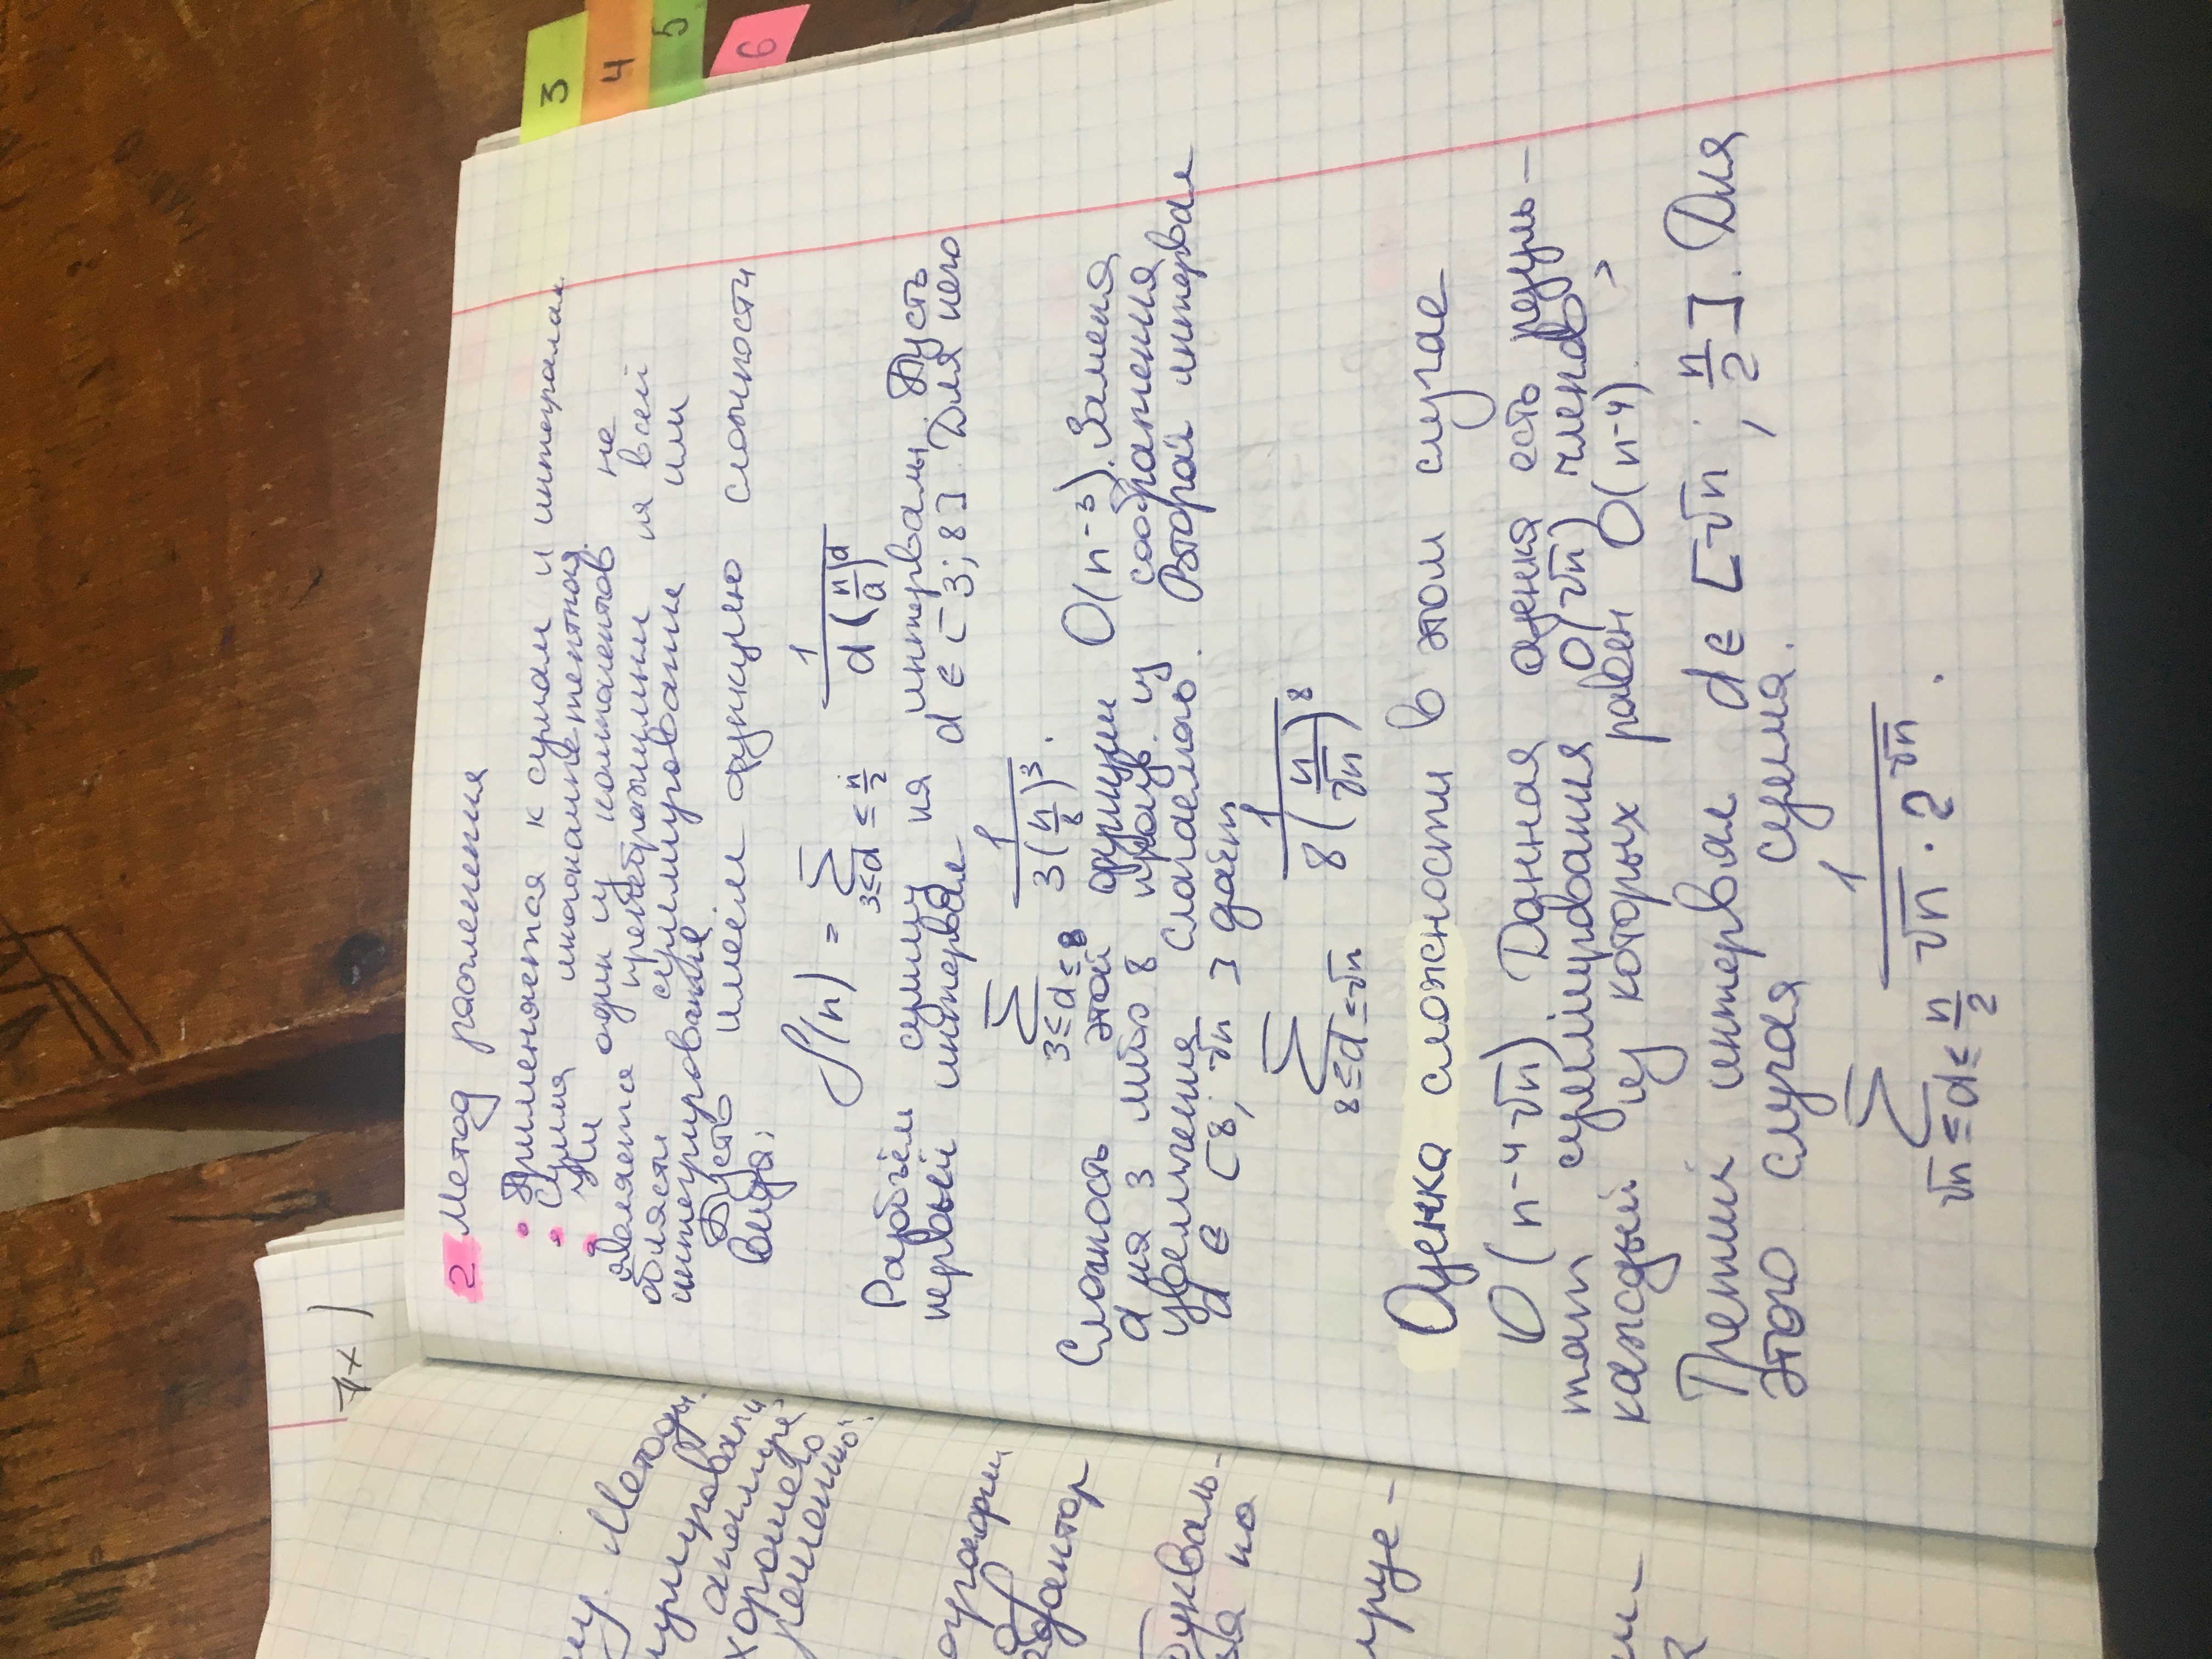 му. Методы
суммировани
хорошего
решению.
фактор
букваль-
ся на
лируе-
7x)
2 Метод расчленения
• Применяется к сумам и интегралам
• Сумма многокомпетентная.
• Ни один из компонентов не
является пренебрежимым на всей
области суммирование или
интегрирование.
Пусть имеем функцию сложности
вида:
f(n) = Σ 3≤d≤n/2 1/(d(n/d)^d)
Разобъём сумму на интервалы. Пусть
первый интервал d ∈ [3;8]. Для него
Σ 3≤d≤8 1/(3(n/8)^3).
Сложность этой функции O(n-3). Замена
d на 3 либо 8 произв. из соображения
увеличения слагаемого. Второй интервал
d ∈ [8; √n] даёт
Σ 8≤d≤√n 1/(8(n/√n)^8)
Оценка сложности в этом случае
O(n-4√n). Данная оценка есть резуль-
тат суммирования O(√n) членов,
каждый из которых равен O(n-4).
Третий интервал d ∈ [√n; n/2]. Для
этого случая сумма.
Σ √n≤d≤n/2 1/(√n · 2^√n).
3
4
5
6